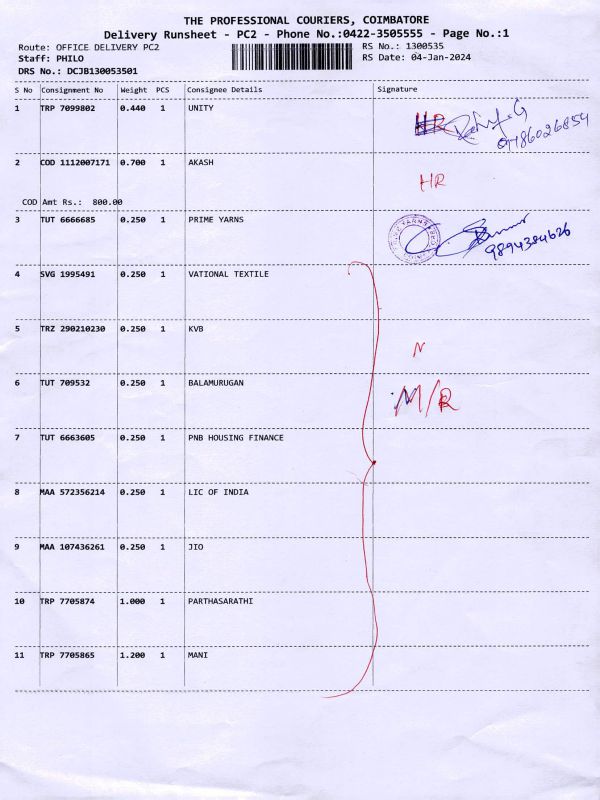 THE PROFESSIONAL COURIERS, COIMBATORE
Delivery Runsheet - PC2 - Phone No.:0422-3505555 - Page No.:1
Route: OFFICE DELIVERY PC2 RS No.: 1300535
Staff: PHILO RS Date: 04-Jan-2024
DRS No.: DCJB130053501
S No Consignment No Weight PCS Consignee Details Signature
1 TRP 7099802 0.440 1 UNITY HR
2 COD 1112007171 0.700 1 AKASH
HR
COD Amt Rs.: 800.00
3 TUT 6666685 0.250 1 PRIME YARNS
9894384626
4 SVG 1995491 0.250 1 VATIONAL TEXTILE
5 TRZ 290210230 0.250 1 KVB
N
6 TUT 709532 0.250 1 BALAMURUGAN
M/R
7 TUT 6663605 0.250 1 PNB HOUSING FINANCE
8 MAA 572356214 0.250 1 LIC OF INDIA
9 MAA 107436261 0.250 1 JIO
10 TRP 7705874 1.000 1 PARTHASARATHI
11 TRP 7705865 1.200 1 MANI